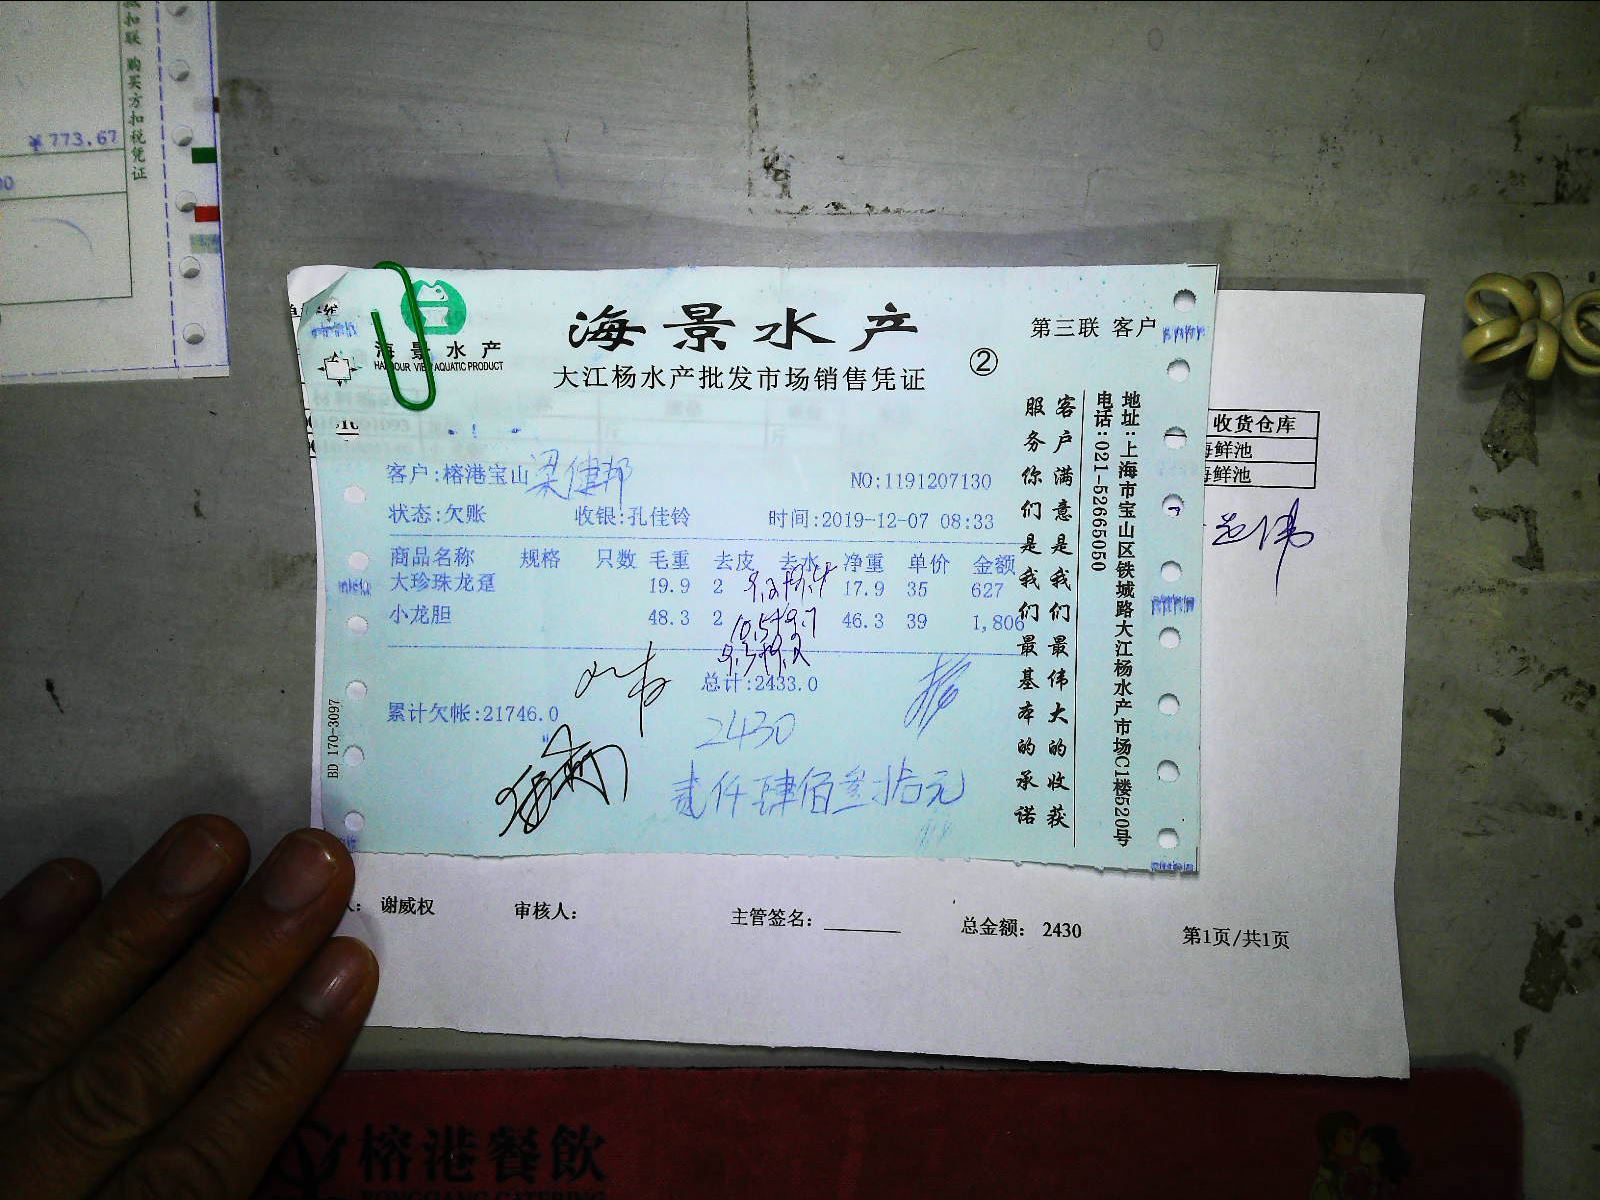 购买方扣税凭证
¥773.67
海景水产
HARBOUR VIEW AQUATIC PRODUCT
海景水产
大江杨水产批发市场销售凭证
②
第三联 客户
客户:榕港宝山 梁健邦
NO:1191207130
状态:欠账 收银:孔佳铃 时间:2019-12-07 08:33
商品名称 规格 只数 毛重 去皮 去水 净重 单价 金额
大珍珠龙趸 19.9 2 17.9 35 627
9.2+9.4
小龙胆 48.3 2 46.3 39 1,806
10.5+9.7
9.3+9.2
总计:2433.0
累计欠帐:21746.0
2430
贰仟肆佰叁拾元
BD 170-3097
客户满意是我们最伟大的收获
服务你们是我们最基本的承诺
地址:上海市宝山区铁城路大江杨水产市场C1楼520号
电话:021-52665050
收货仓库
海鲜池
海鲜池
谢威权 审核人: 主管签名: 总金额: 2430 第1页/共1页
榕港餐飲